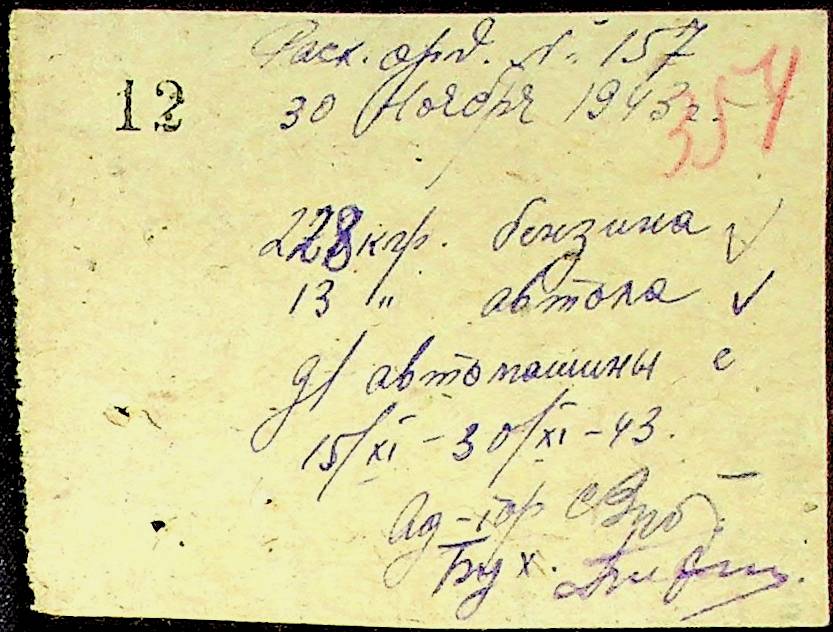 Расх. орд. № 157
12
30 Ноября 1943 г.
354
228 кгр. бензина ✓
13 " автола ✓
д/ автомашины с
15/XI - 30/XI - 43.
Ад-тор
Бух.